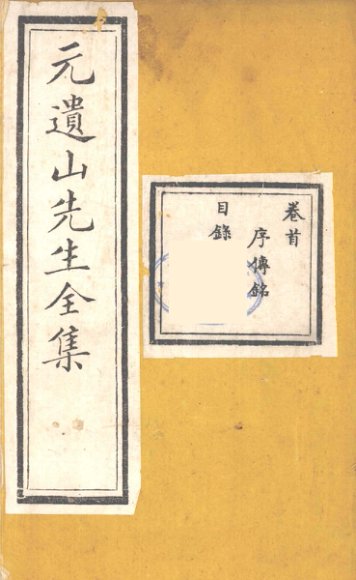 元遺山先生全集
卷首
序傳銘
目錄